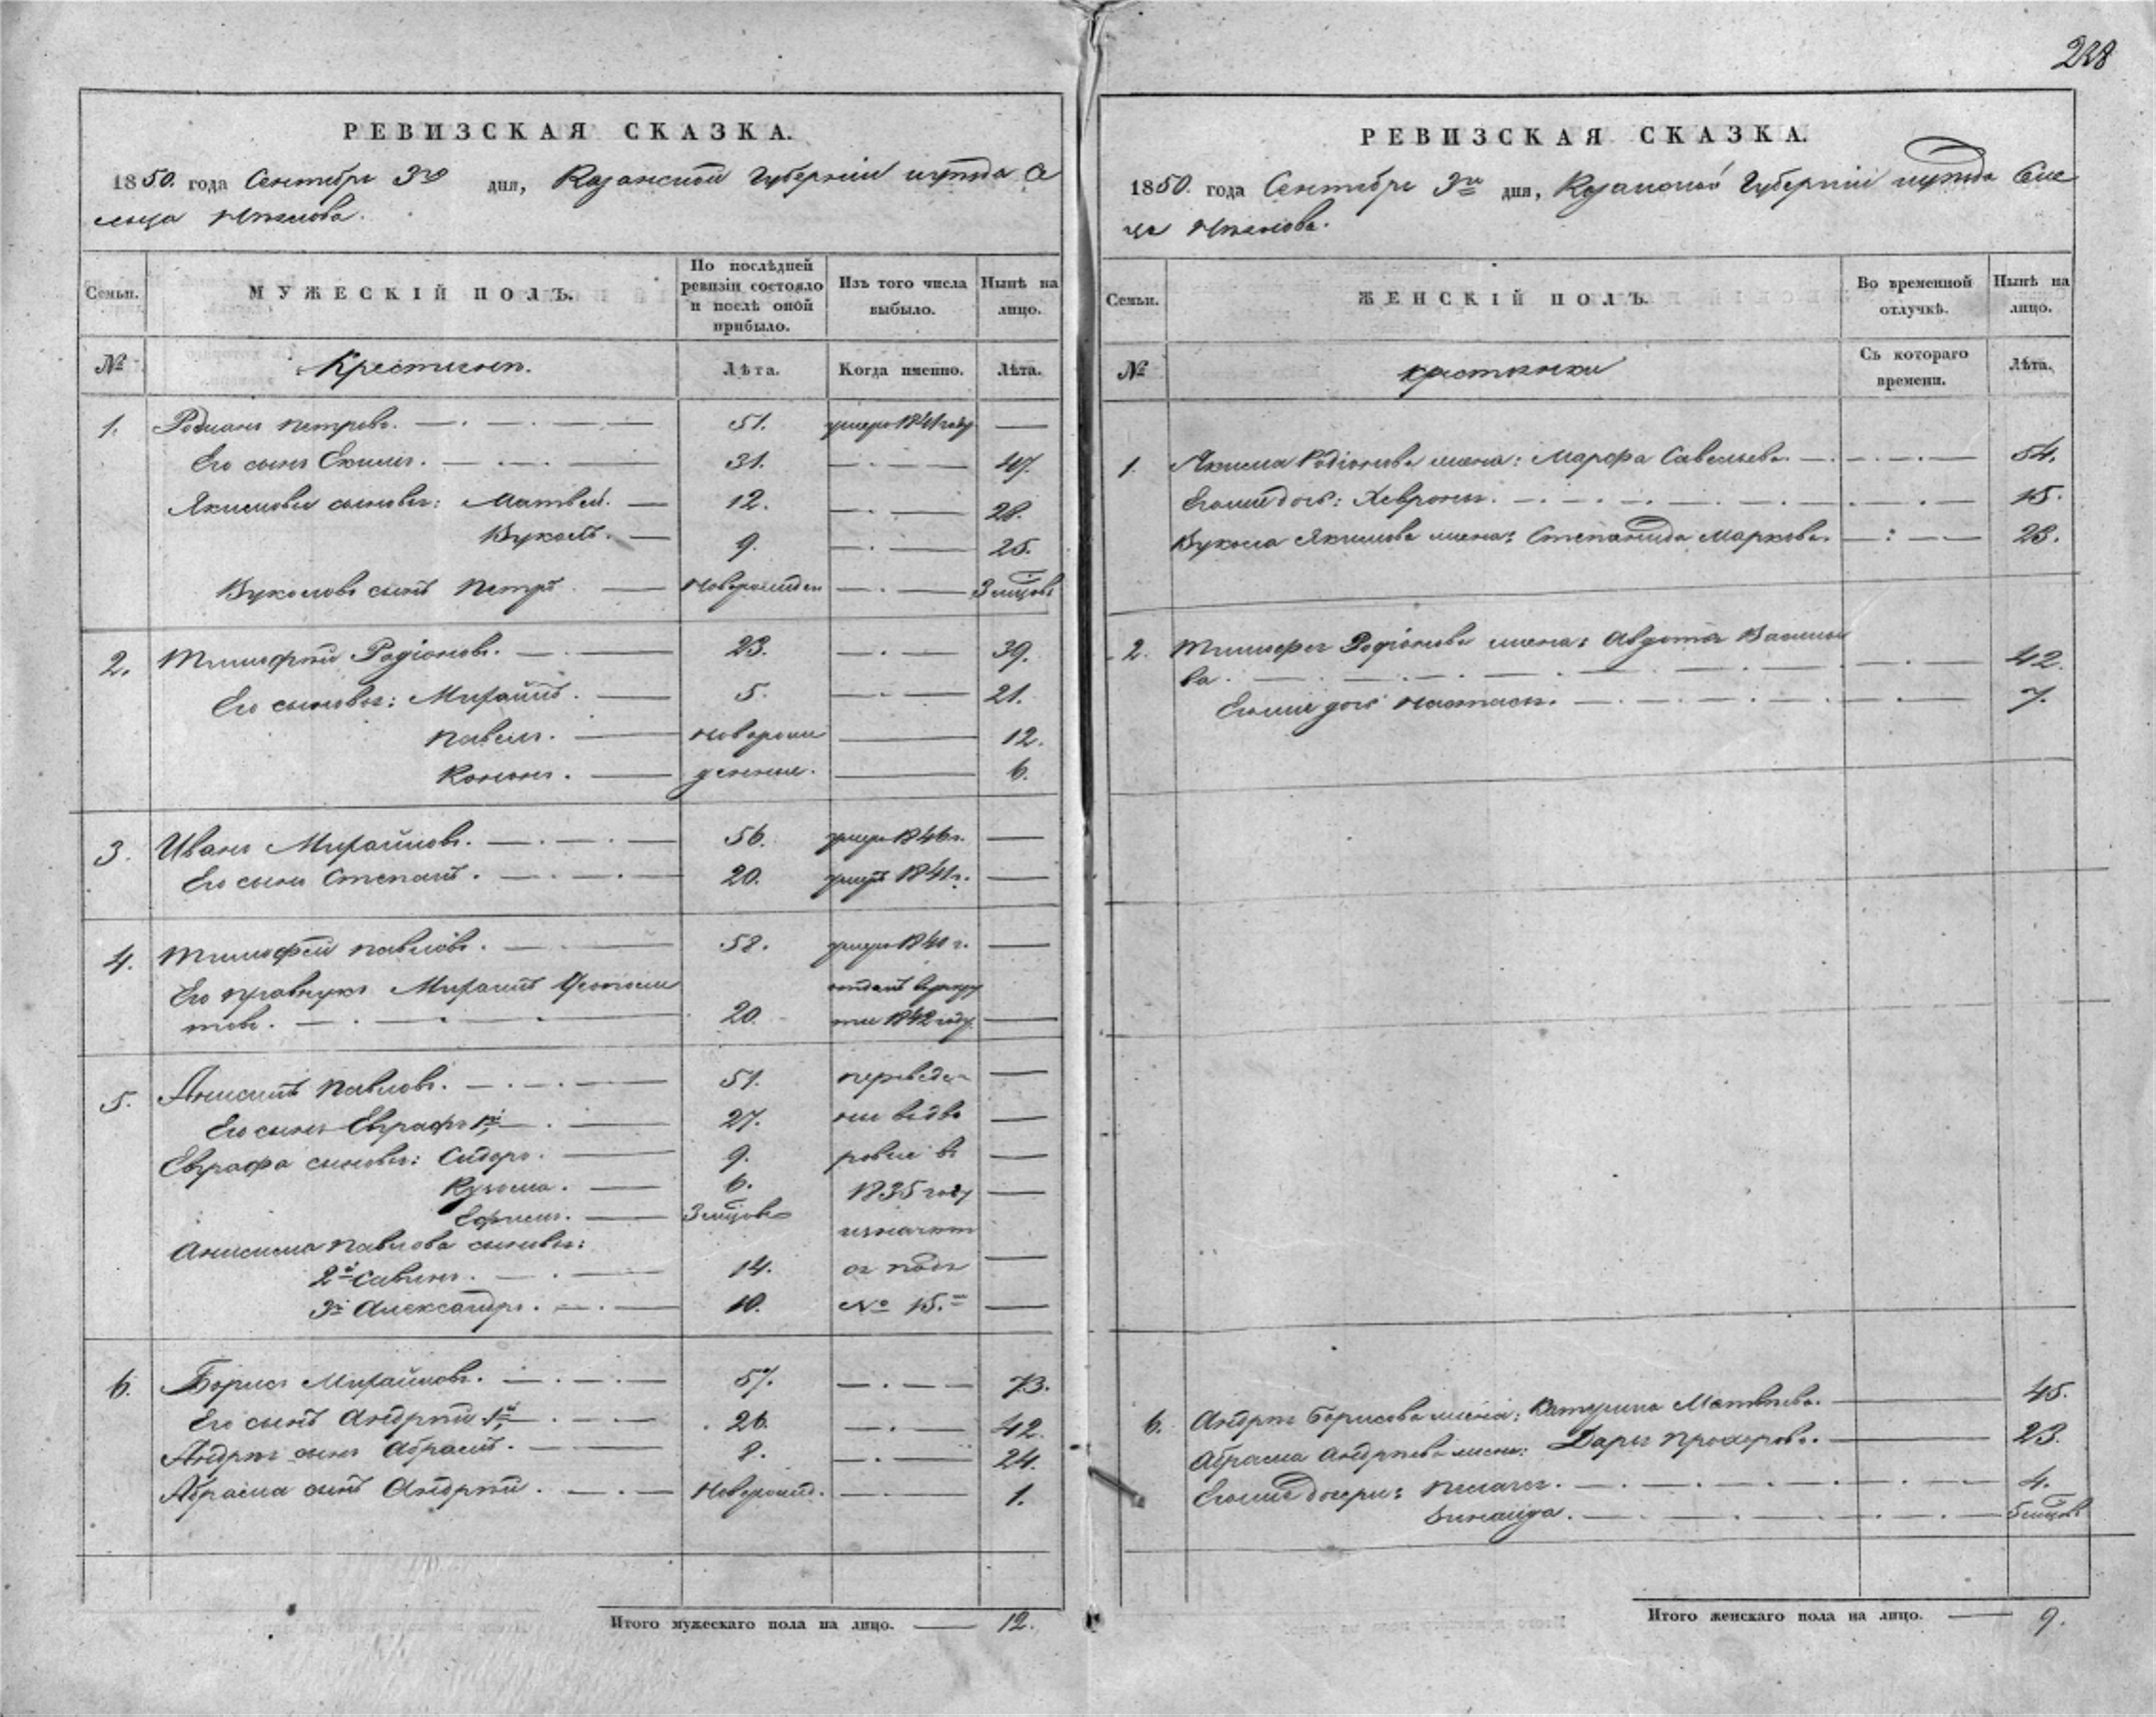 238
РЕВИЗСКАЯ СКАЗКА.
1850. года Сентября 3го дня, Казанской Губернии уѣзда Се
льца
Семьи. МУЖЕСКІЙ ПОЛЪ. По послѣдней ревизіи состояло и послѣ оной прибыло. Изъ того числа выбыло. Нынѣ на лицо.
№ Крестьянъ. Лѣта. Когда именно. Лѣта.
1. Родионъ Петровъ. 51. умеръ 1841 году —
Его сынъ Екимъ. 31. — 47.
Якимовы сыновья: Матвей. 12. — 28.
Вуколъ. 9. — 25.
Вуколовъ сынъ Петръ. Новорожден — 3 мцовъ
2. Тимофѣй Родіоновъ. 23. — 39.
Его сыновья: Михайлъ. 5. — 21.
Павелъ. Новорож — 12.
Кононъ. денные. — 6.
3. Иванъ Михайловъ. 56. умеръ 1846 г. —
Его сынъ Степанъ. 20. умеръ 1841 г. —
4. Тимофей Павловъ. 58. умеръ 1840 г. —
Его правнукъ Михаилъ
товъ. 20. 1842 году —
5. Анисимъ Павловъ. 51. переведе —
Его сынъ Евграфъ 1й 27. ны въ дво —
Евграфа сыновья: Сидоръ. 9. ровые въ —
Кузьма. 6. 1835 году —
Ефимъ. 3 мцовъ
Анисима Павлова сыновья:
2й Савинъ. 14. подъ —
3й Александръ. 10. № 15. —
6. Борисъ Михайловъ. 57. — 73.
Его сынъ Андрѣй 1й 26. — 42.
Андрея сынъ Абрамъ. 8. — 24.
Абрама сынъ Андрѣй. Новорожд. — 1.
Итого мужескаго пола на лицо. — 12.
РЕВИЗСКАЯ СКАЗКА.
1850. года Сентября 3го дня, Казанской Губерніи уѣзда Сель
ца
Семьи. ЖЕНСКІЙ ПОЛЪ. Во временной отлучкѣ. Нынѣ на лицо.
№ крестьянки Съ котораго времени. Лѣта.
1. Якима Родіонова жена: Марфа Савельева. — 54.
Егожъ дочь: Хеврония. — 15.
Вукола Якимова жена: Степанида Маркова. — 23.
2. Тимофея Родіонова жена: Авдотья Василье
ва. — 42.
Егоже дочь Настасья. — 7.
6. Андрея Борисова жена: Катерина Матвѣева. — 45.
Абрама Андрѣева жена: Дарья Прохорова. — 23.
Егоже дочери: Пелагея. — 4.
Зинаида. — 5 мцовъ
Итого женскаго пола на лицо. — 9.